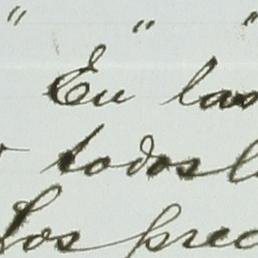 " " "
En las
todos l
Los prec